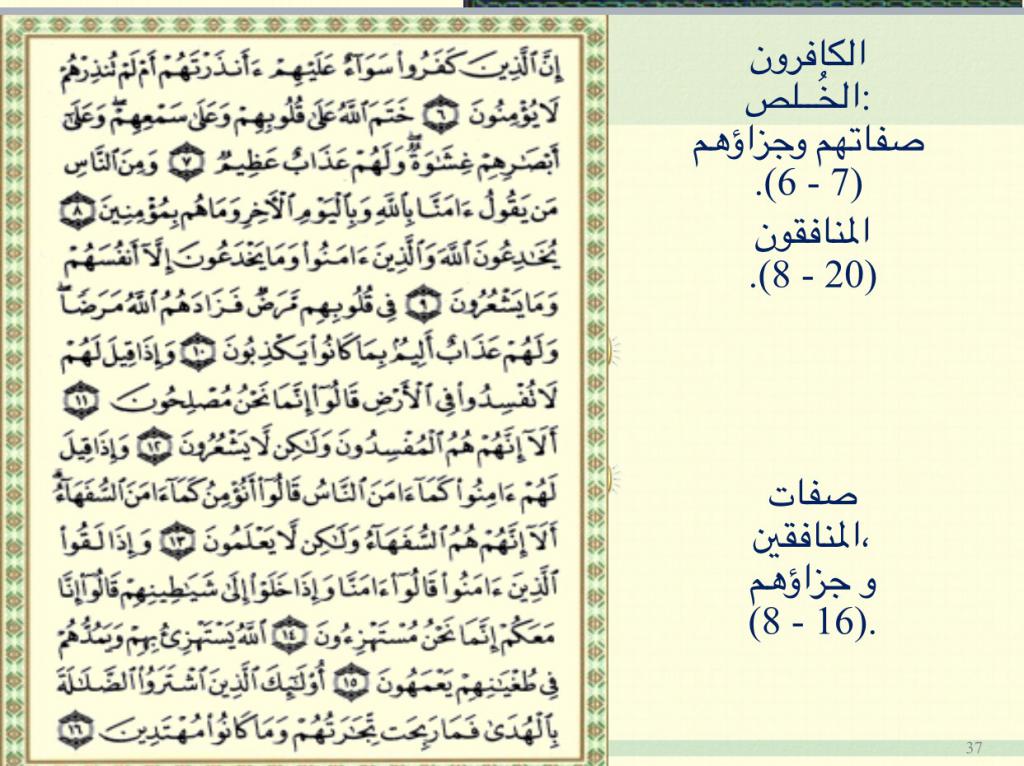 إِنَّ ٱلَّذِينَ كَفَرُوا۟ سَوَآءٌ عَلَيْهِمْ ءَأَنذَرْتَهُمْ أَمْ لَمْ تُنذِرْهُمْ
لَا يُؤْمِنُونَ ٦ خَتَمَ ٱللَّهُ عَلَىٰ قُلُوبِهِمْ وَعَلَىٰ سَمْعِهِمْ ۖ وَعَلَىٰٓ
أَبْصَـٰرِهِمْ غِشَـٰوَةٌ ۖ وَلَهُمْ عَذَابٌ عَظِيمٌ ٧ وَمِنَ ٱلنَّاسِ
مَن يَقُولُ ءَامَنَّا بِٱللَّهِ وَبِٱلْيَوْمِ ٱلْـَٔاخِرِ وَمَا هُم بِمُؤْمِنِينَ ٨
يُخَـٰدِعُونَ ٱللَّهَ وَٱلَّذِينَ ءَامَنُوا۟ وَمَا يَخْدَعُونَ إِلَّآ أَنفُسَهُمْ
وَمَا يَشْعُرُونَ ٩ فِى قُلُوبِهِم مَّرَضٌ فَزَادَهُمُ ٱللَّهُ مَرَضًا ۖ
وَلَهُمْ عَذَابٌ أَلِيمٌۢ بِمَا كَانُوا۟ يَكْذِبُونَ ١٠ وَإِذَا قِيلَ لَهُمْ
لَا تُفْسِدُوا۟ فِى ٱلْأَرْضِ قَالُوٓا۟ إِنَّمَا نَحْنُ مُصْلِحُونَ ١١
أَلَآ إِنَّهُمْ هُمُ ٱلْمُفْسِدُونَ وَلَـٰكِن لَّا يَشْعُرُونَ ١٢ وَإِذَا قِيلَ
لَهُمْ ءَامِنُوا۟ كَمَآ ءَامَنَ ٱلنَّاسُ قَالُوٓا۟ أَنُؤْمِنُ كَمَآ ءَامَنَ ٱلسُّفَهَآءُ ۗ
أَلَآ إِنَّهُمْ هُمُ ٱلسُّفَهَآءُ وَلَـٰكِن لَّا يَعْلَمُونَ ١٣ وَإِذَا لَقُوا۟
ٱلَّذِينَ ءَامَنُوا۟ قَالُوٓا۟ ءَامَنَّا وَإِذَا خَلَوْا۟ إِلَىٰ شَيَـٰطِينِهِمْ قَالُوٓا۟ إِنَّا
مَعَكُمْ إِنَّمَا نَحْنُ مُسْتَهْزِءُونَ ١٤ ٱللَّهُ يَسْتَهْزِئُ بِهِمْ وَيَمُدُّهُمْ
فِى طُغْيَـٰنِهِمْ يَعْمَهُونَ ١٥ أُو۟لَـٰٓئِكَ ٱلَّذِينَ ٱشْتَرَوُا۟ ٱلضَّلَـٰلَةَ
بِٱلْهُدَىٰ فَمَا رَبِحَت تِّجَـٰرَتُهُمْ وَمَا كَانُوا۟ مُهْتَدِينَ ١٦
الكافرون
الخُــلص:
صفاتهم وجزاؤهم
(6 - 7).
المنافقون
(8 - 20).
صفات
المنافقين،
و جزاؤهم
(8 - 16).
37